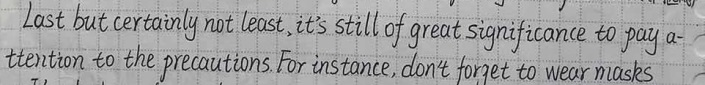 Last but certainly not least, it's still of great significance to pay a-
ttention to the precautions. For instance, don't forget to wear masks